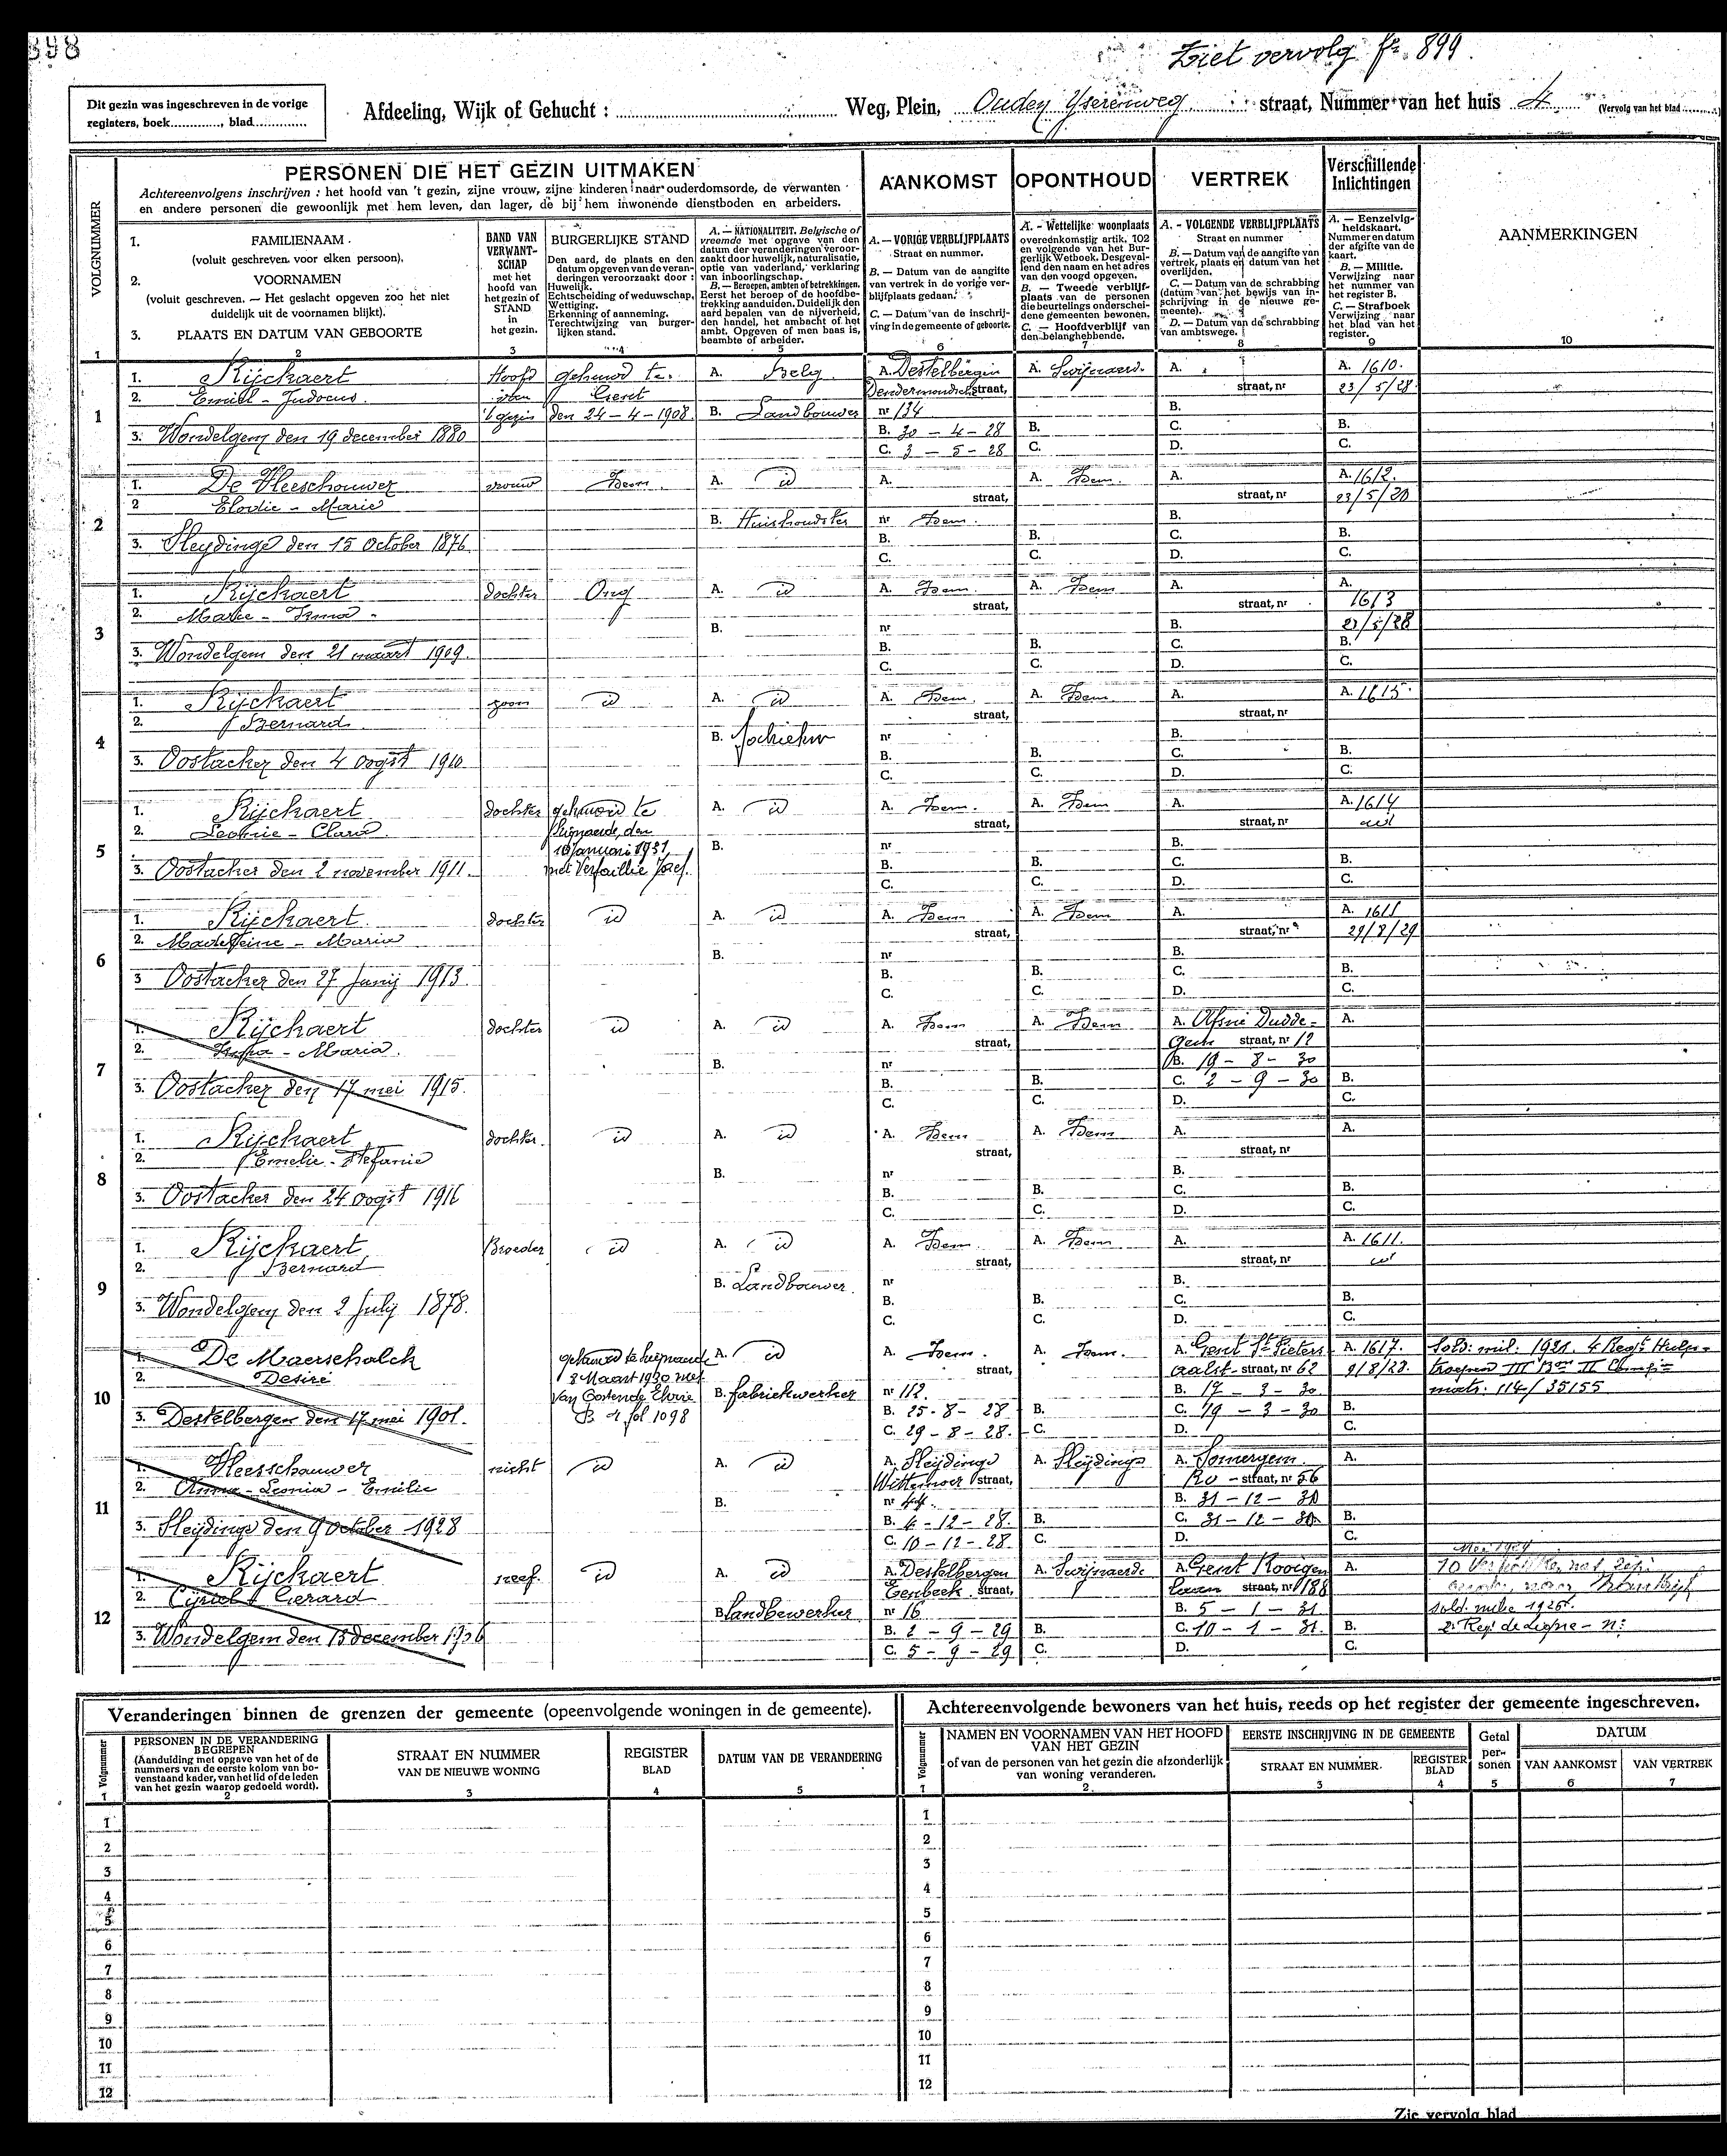 898
Ziet vervolg fo 899.
Dit gezin was ingeschreven in de vorige
registers, boek............, blad............
Afdeeling, Wijk of Gehucht : ............ Weg, Plein, Ouden Yserenweg straat, Nummer van het huis 4 (Vervolg van het blad ........)
PERSONEN DIE HET GEZIN UITMAKEN
Achtereenvolgens inschrijven : het hoofd van 't gezin, zijne vrouw, zijne kinderen naar ouderdomsorde, de verwanten
en andere personen die gewoonlijk met hem leven, dan lager, de bij hem inwonende dienstboden en arbeiders.
AANKOMST OPONTHOUD VERTREK Verschillende Inlichtingen AANMERKINGEN
VOLGNUMMER
1. FAMILIENAAM.
(voluit geschreven voor elken persoon).
2. VOORNAMEN
(voluit geschreven. — Het geslacht opgeven zoo het niet
duidelijk uit de voornamen blijkt).
3. PLAATS EN DATUM VAN GEBOORTE
BAND VAN
VERWANT-
SCHAP
met het
hoofd van
het gezin of
STAND
in
het gezin.
BURGERLIJKE STAND
Den aard, de plaats en den
datum opgeven van de veran-
deringen veroorzaakt door :
Huwelijk.
Echtscheiding of weduwschap,
Wettiging.
Erkenning of aanneming.
Terechtwijzing van burger-
lijken stand.
A. — NATIONALITEIT. Belgische of
vreemde met opgave van den
datum der veranderingen veroor-
zaakt door huwelijk, naturalisatie,
optie van vaderland, verklaring
van inboorlingschap.
B. — Beroepen, ambten of betrekkingen.
Eerst het beroep of de hoofdbe-
trekking aanduiden. Duidelijk den
aard bepalen van de nijverheid,
den handel, het ambacht of het
ambt. Opgeven of men baas is,
beambte of arbeider.
A. — VORIGE VERBLIJFPLAATS
Straat en nummer.
B. — Datum van de aangifte
van vertrek in de vorige ver-
blijfplaats gedaan.
C. — Datum van de inschrij-
ving in de gemeente of geboorte.
A. - Wettelijke woonplaats
overeenkomstig artik. 102
en volgende van het Bur-
gerlijk Wetboek. Desgeval-
lend den naam en het adres
van den voogd opgeven.
B. — Tweede verblijf-
plaats van de personen
die beurtelings onderschei-
dene gemeenten bewonen.
C. — Hoofdverblijf van
den belanghebbende.
A. - VOLGENDE VERBLIJFPLAATS
Straat en nummer
B. — Datum van de aangifte van
vertrek, plaats en datum van het
overlijden.
C. — Datum van de schrabbing
(datum van het bewijs van in-
schrijving in de nieuwe ge-
meente).
D. — Datum van de schrabbing
van ambtswege.
A. — Eenzelvig-
heidskaart.
Nummer en datum
der afgifte van de
kaart.
B. — Militie.
Verwijzing naar
het nummer van
het register B.
C. — Strafboek
Verwijzing naar
het blad van het
register.
1 2 3 4 5 6 7 8 9 10
1
1. Rijckaert Hoofd gehuwd te A. Belg A. Destelbergen A. Swijnaerd. A. A. 1610.
2. Emiel - Judocus. van Gent Dendermondsche straat, straat, nr 23/5/28
't gezin den 24 - 4 - 1908. B. Landbouwer nr 134 B.
3. Wondelgem den 19 december 1880 B. 30 - 4 - 28 B. C. B.
C. 3 - 5 - 28 C. D. C.
2
1. De Vleeschouwer vrouw Idem. A. id A. A. Idem. A. A. 1612.
2 Elodie - Marie straat, straat, nr 23/5/20
B. Huishoudster nr Idem. B.
3. Sleydinge den 15 October 1876 B. B. C. B.
C. C. D. C.
3
1. Rijckaert dochter Ong A. id A. Idem A. Idem A. A.
2. Marie - Irma straat, straat, nr 1613
B. nr B. 23/5/28
3. Wondelgem den 21 maart 1909. B. B. C. B.
C. C. D. C.
4
1. Rijckaert zoon id A. id A. Idem A. Idem A. A. 1615.
2. Bernard straat, straat, nr
B. nr B.
3. Oostacker den 4 oogst 1910 B. B. C. B.
C. C. D. C.
5
1. Rijckaert dochter gehuwd te A. id A. Idem. A. Idem A. A. 1614
2. Leonie - Clara. den straat, straat, nr
januari 1931 B. nr B.
3. Oostacker den 2 november 1911. met Verfaillie Jozef. B. B. C. B.
C. C. D. C.
6
1. Rijckaert dochter id A. id A. Idem A. Idem A. A.
2. Madeleine - Maria straat, straat, nr 29/8/29
B. nr B.
3 Oostacker den 27 Junij 1913 B. B. C. B.
C. C. D. C.
7
1. Rijckaert dochter id A. id A. Idem A. Idem A. Afsné Dudde= A.
2. Maria. straat, gem straat, nr 12
B. nr B. 19 - 8 - 30
3. Oostacker den 17 mei 1915. B. B. C. 2 - 9 - 30 B.
C. C. D. C.
8
1. Rijckaert dochter. id A. id A. Idem A. Idem A. A.
2. Emelie - Stefanie straat, straat, nr
B. nr B.
3. Oostacker den 24 oogst 1916 B. B. C. B.
C. C. D. C.
9
1. Rijckaert Broeder id A. id A. Idem A. Idem A. A. 1611.
2. Bernard straat, straat, nr id
B. Landbouwer. nr B.
3. Wondelgem den 2 July 1878. B. B. C. B.
C. C. D. C.
10
1. De Maerschalck gehuwd te Swijnaerde A. id A. Idem. A. Idem. A. Gent St Pieters A. 1617. Sold. mil: 1921. 4 Regt Hulp=
2. Desiré 8 Maart 1930 met straat, aalst - straat, nr 62 9/8/28. troepen III Bon II Compie
Van Oostende Elvire B. fabriekwerker nr 112. B. 17 - 3 - 30 matr: 114/35155
3. Destelbergen den 17 mei 1901. B 4 fol 1098 B. 25 - 8 - 28 B. C. 19 - 3 - 30 B.
C. 29 - 8 - 28. C. D. C.
11
1. Vleesschauwer nicht id A. id A. Sleydinge A. Sleydinge A. Somergem. A.
2. Anna - Leonia - Emilie straat, Ro - straat, nr 56
B. nr B. 31 - 12 - 30
3. Sleydinge den 9 october 1928 B. 4 - 12 - 28. B. C. 31 - 12 - 30 B.
C. 10 - 12 - 28. C. D. C.
12
1. Rijckaert neef. id A. id A. Destelbergen A. Swijnaerde A. Gent Kooigem A.
2. Cyriel Gerard Eenbeek straat, laan straat, nr 188
B. landbewerker nr 16 B. 5 - 1 - 31 sold. milic 1926.
3. Wondelgem den 13 december 1906 B. 2 - 9 - 29 B. C. 10 - 1 - 31. B. 2e Regt de Ligne - n:
C. 5 - 9 - 29 C. D. C.
Veranderingen binnen de grenzen der gemeente (opeenvolgende woningen in de gemeente).
Volgnummer
PERSONEN IN DE VERANDERING
BEGREPEN
(Aanduiding met opgave van het of de
nummers van de eerste kolom van bo-
venstaand kader, van het lid of de leden
van het gezin waarop gedoeld wordt).
STRAAT EN NUMMER
VAN DE NIEUWE WONING
REGISTER
BLAD
DATUM VAN DE VERANDERING
1 2 3 4 5
1
2
3
4
5
6
7
8
9
10
11
12
Achtereenvolgende bewoners van het huis, reeds op het register der gemeente ingeschreven.
Volgnummer
NAMEN EN VOORNAMEN VAN HET HOOFD
VAN HET GEZIN
of van de personen van het gezin die afzonderlijk
van woning veranderen.
EERSTE INSCHRIJVING IN DE GEMEENTE
STRAAT EN NUMMER.
REGISTER
BLAD
Getal
per-
sonen
DATUM
VAN AANKOMST VAN VERTREK
1 2 3 4 5 6 7
1
2
3
4
5
6
7
8
9
10
11
12
Zie vervolg blad